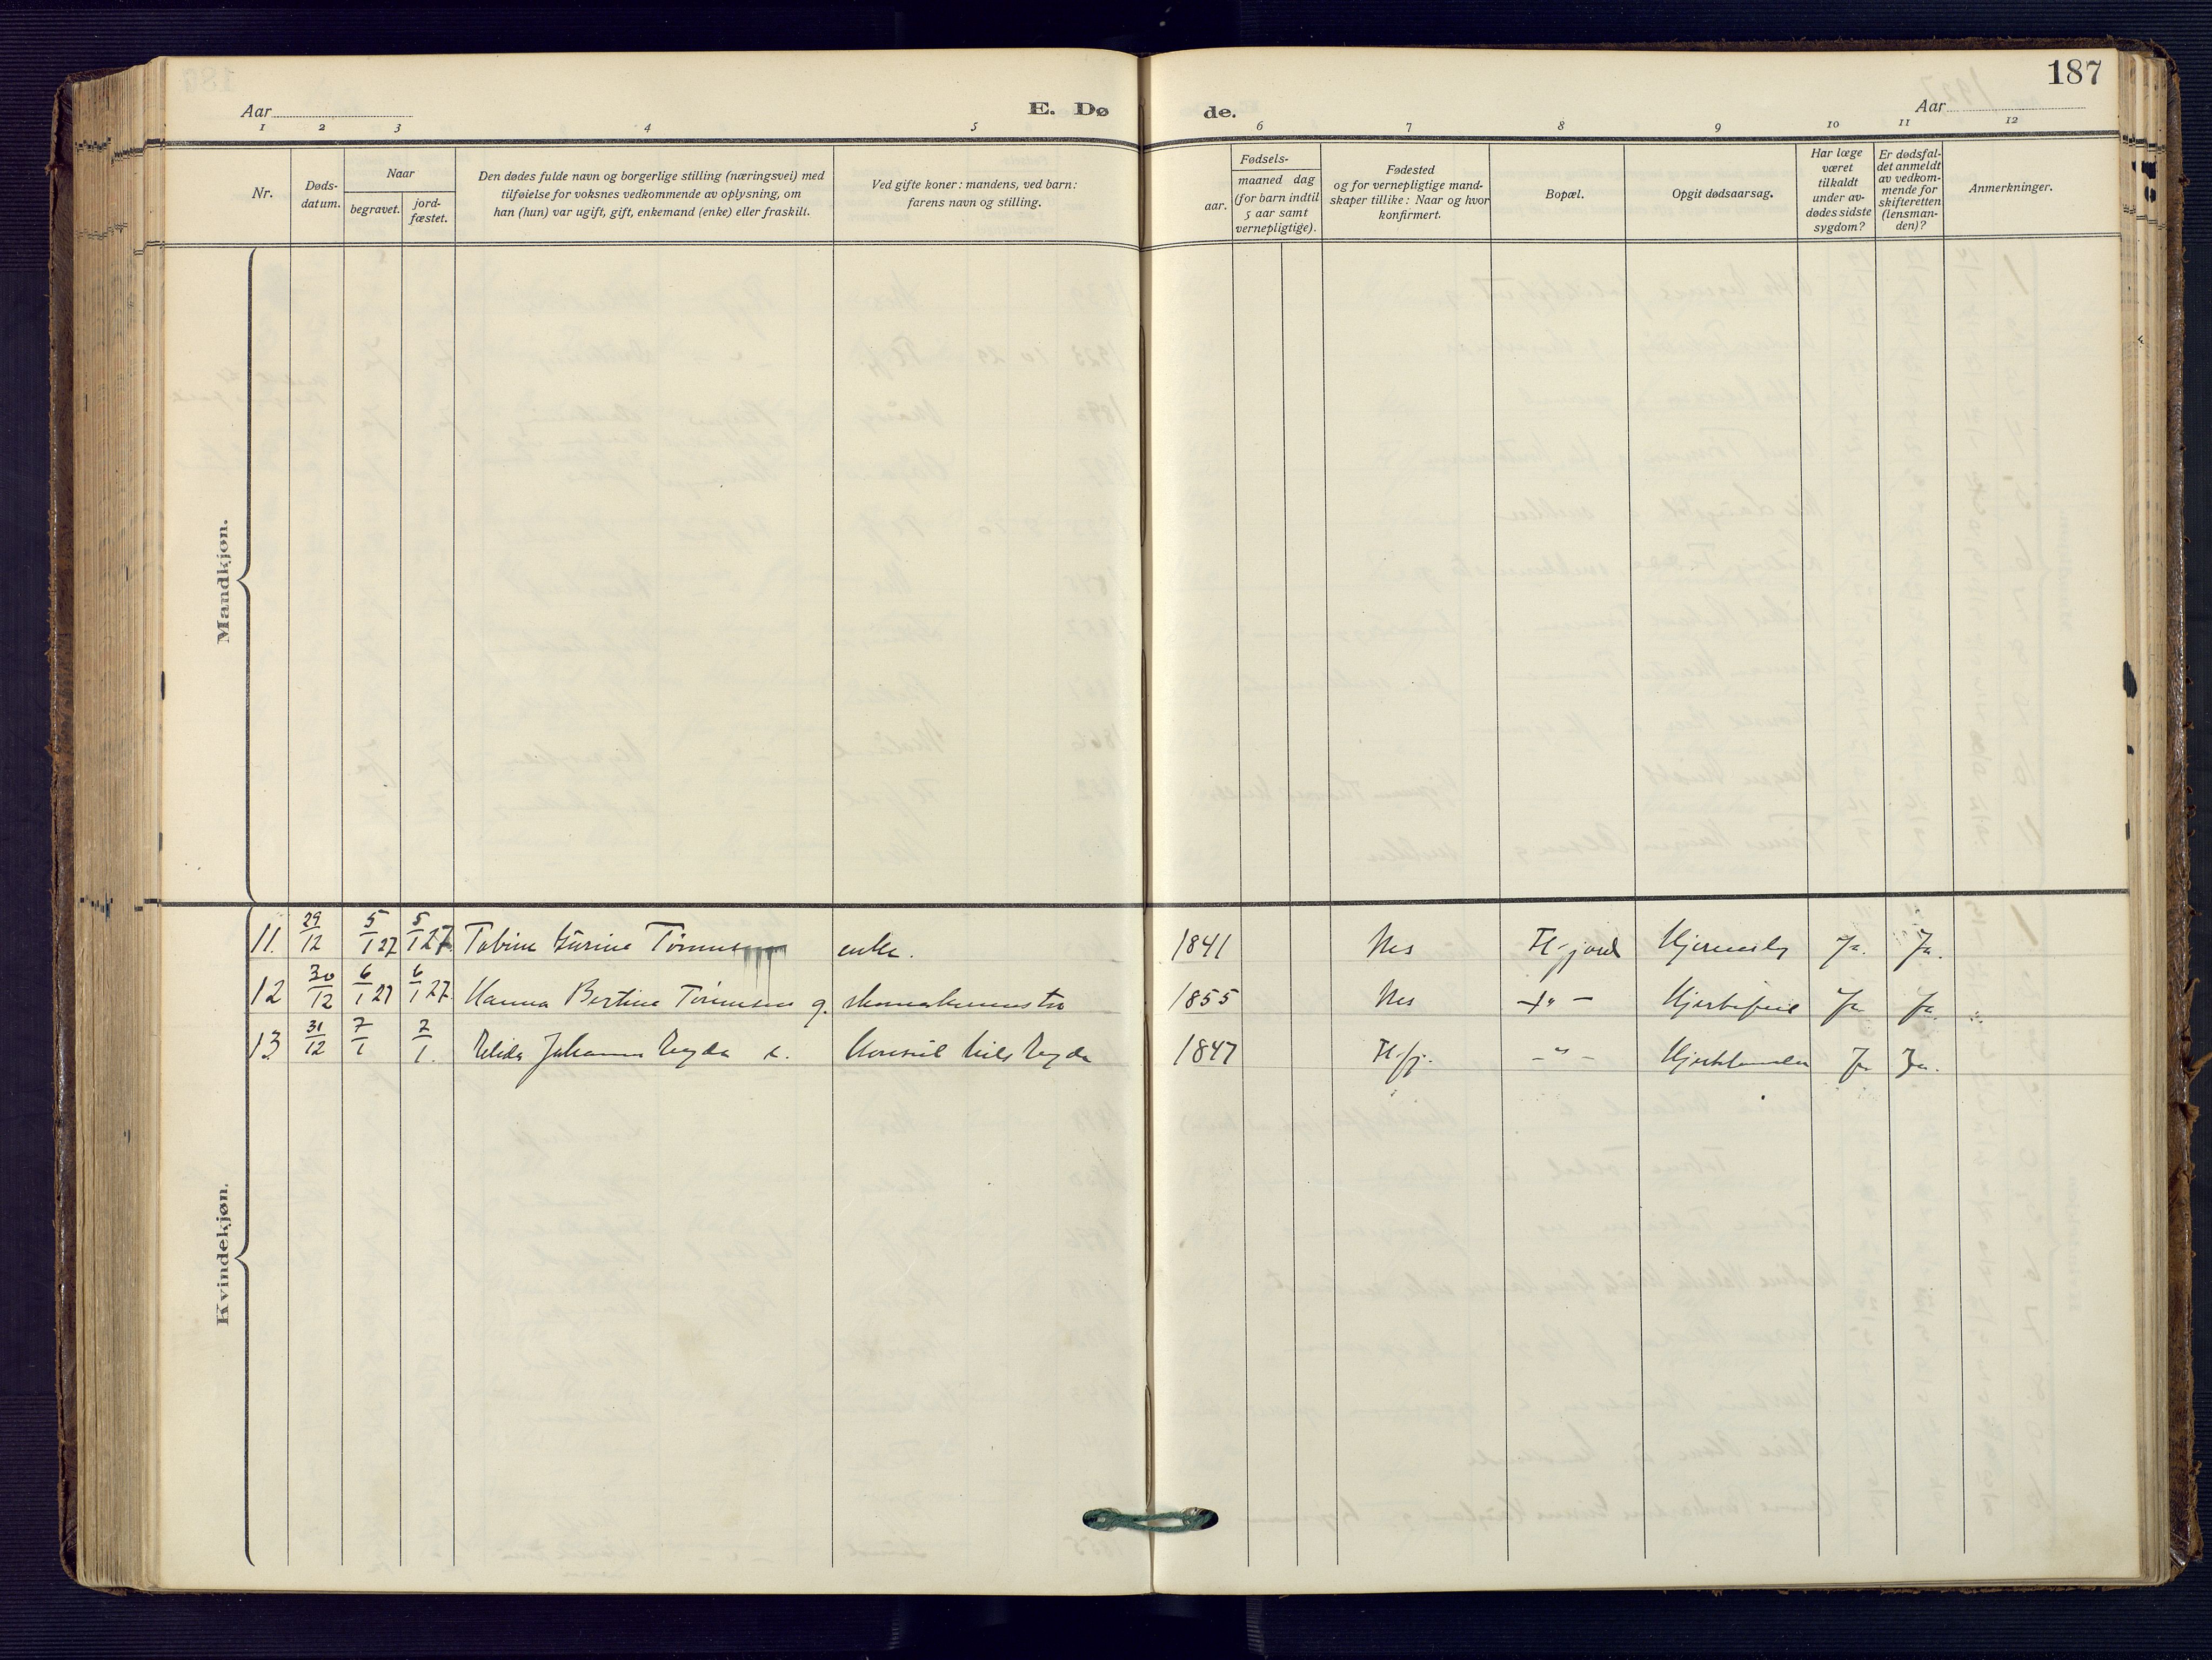 187
Aar
E. Døde.
Aar
1 2 3 4 5 6 7 8 9 10 11 12
Nr.
Døds-
datum.
Naar
begravet.
jord-
fæstet.
Den dødes fulde navn og borgerlige stilling (næringsvei) med
tilføielse for voksnes vedkommende av oplysning, om
han (hun) var ugift, gift, enkemand (enke) eller fraskilt.
Ved gifte koner: mandens, ved barn:
farens navn og stilling.
Fødsels-
aar.
maaned dag
(for barn indtil
5 aar samt
vernepligtige).
Fødested
og for vernepligtige mand-
skaper tillike: Naar og hvor
konfirmert.
Bopæl.
Opgit dødsaarsag.
Har læge
været
tilkaldt
under av-
dødes sidste
sygdom?
Er dødsfal-
det anmeldt
av vedkom-
mende for
skifteretten
(lensman-
den)?
Anmerkninger.
Mandkjøn.
Kvindekjøn.
11. 29/12 5/1 27 5/1 27. Tobine Gurine enke. 1841 Nes Fl-fjord Ja. Ja.
12 30/12 6/1 27 6/1 27. Hanna Bertine Tønnesen g. 1855 Nes -"- Hjertefeil Ja Ja.
13 31/12 7/1 7/1. Johanna e. Konsul 1847 Fl.fj. -"- Ja Ja.